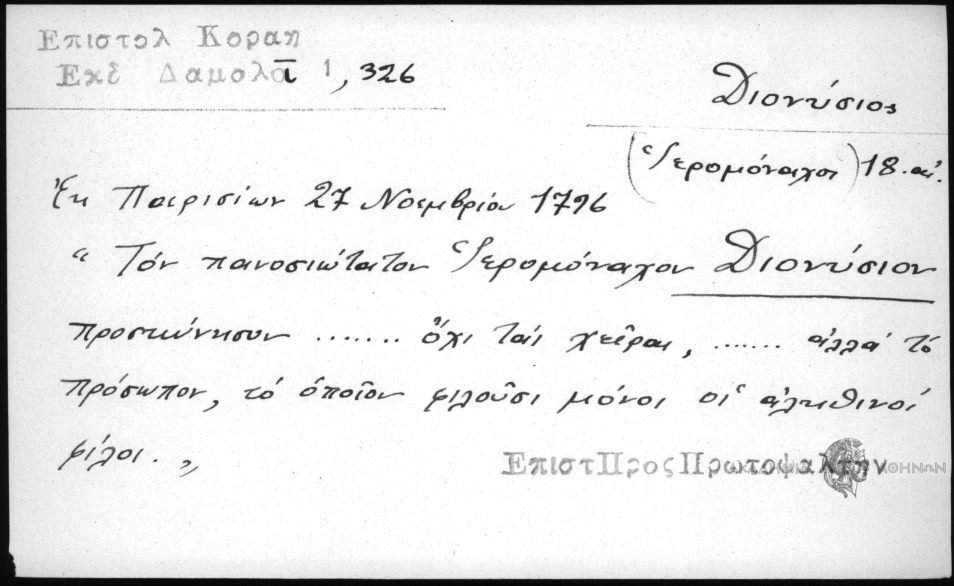 Επιστολ Κοραη
Εκδ Δαμαλᾶ 1, 326
Διονύσιος
(Ἱερομόναχος) 18. αἰ.
Ἐκ Παρισίων 27 Νοεμβρίου 1796
"Τόν πανοσιώτατον Ἱερομόναχον Διονύσιον
προσκύνησον ....... ὄχι τάς χεῖρας, ...... ἀλλά τό
πρόσωπον, τό ὁποῖον φιλοῦσι μόνοι οἱ ἀληθινοί
φίλοι."
Επιστ Προς Πρωτοψαλτην
ΑΘΗΝΩΝ